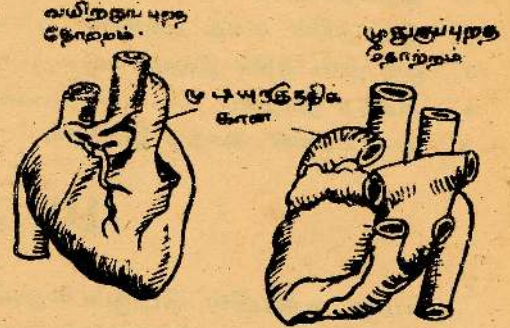 வயிற்றுப் புறத்
தோற்றம்.
முதுகுப்புறத்
தோற்றம்
முடியுருநதிக
கான